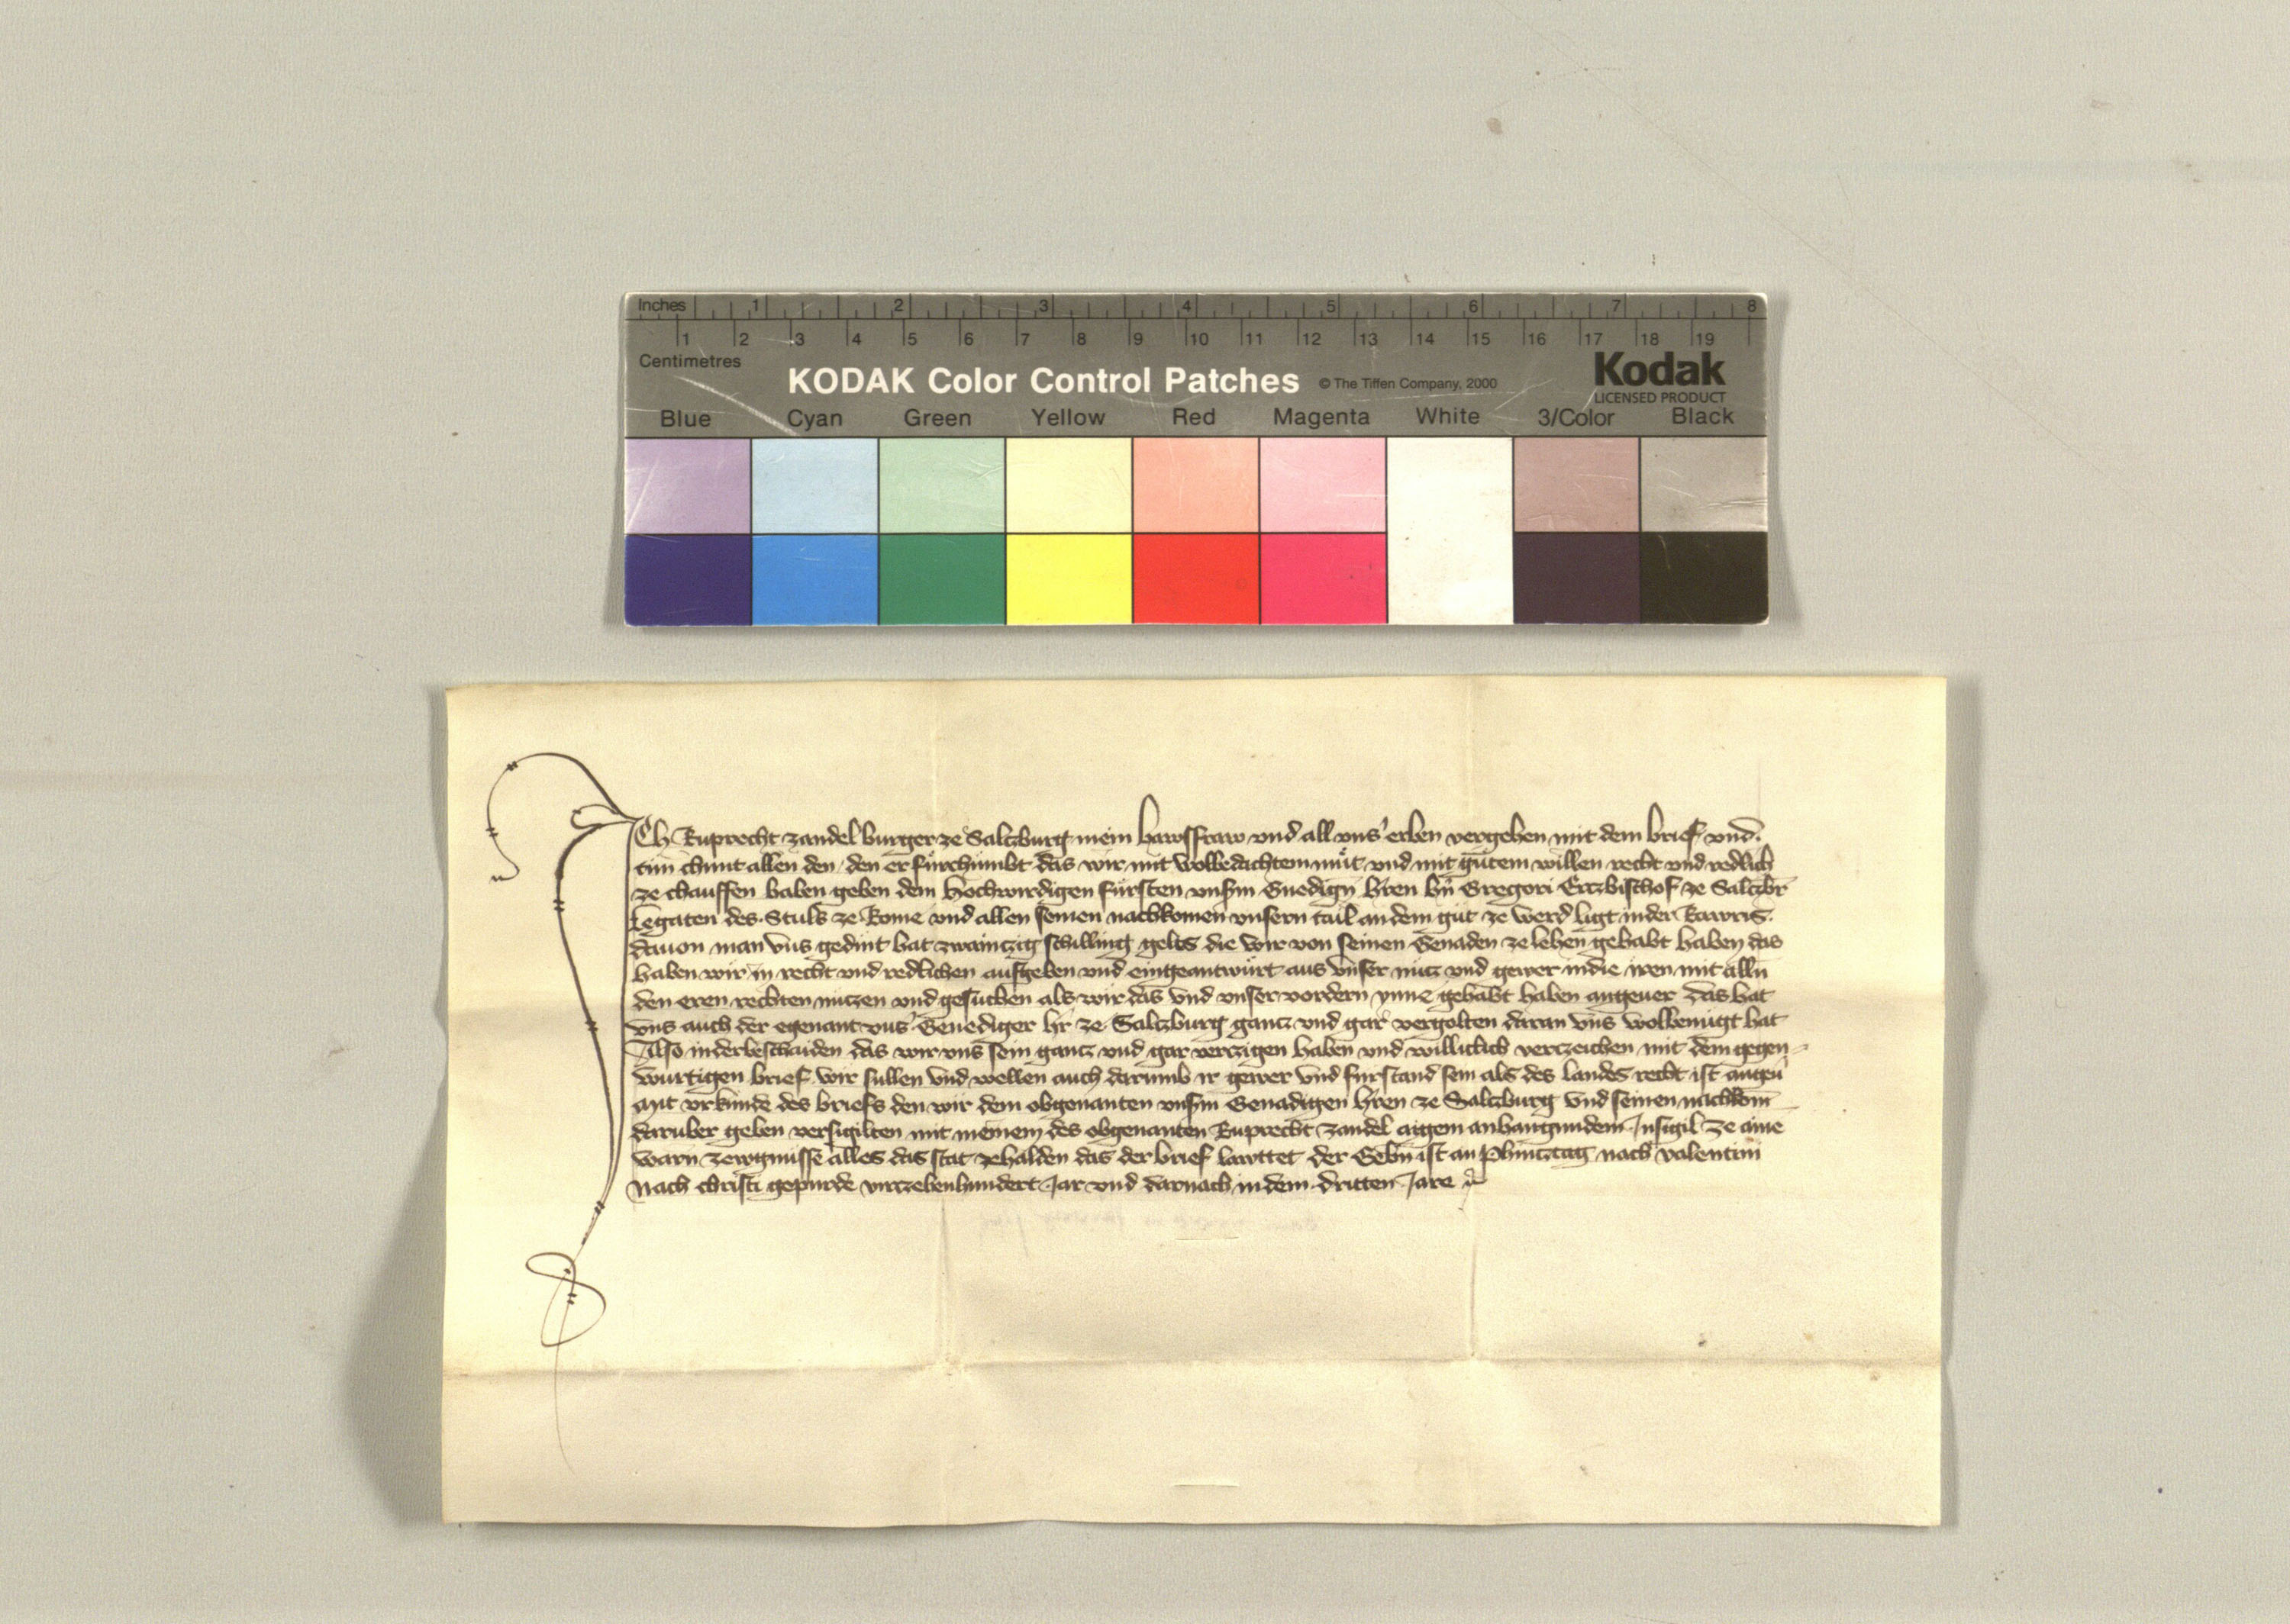 Inches 1 2 3 4 5 6 7 8
1 2 3 4 5 6 7 8 9 10 11 12 13 14 15 16 17 18 19
Centimetres
KODAK Color Control Patches © The Tiffen Company, 2000 Kodak
LICENSED PRODUCT
Blue Cyan Green Yellow Red Magenta White 3/Color Black
ICh Ruprecht zandel burger ze Saltzburg mein hawsfraw vnd all vns' erben vergehen mit dem brief vnd
tun chunt allen den den er fürchumbt das wir mit wolbedachtem müt vnd mit gütem willen recht vnd redlich
ze chauffen haben geben dem Hochwirdigen fürsten vnsm Gnedign hren hn Gregori Ertzbischof ze Saltzbr
Legaten des Stuls ze Rome vnd allen seinen nachkomen vnsern tail an dem güt ze werd ligt in der Rawris
dauon man vns gedint hat zwaintzig schilling gelts die wir von seinen Genaden ze lehen gehabt haben das
haben wir in recht vnd redlichen aufgeben vnd eingeantwürt aus vnser nutz vnd gewer in die iren mit alln
den eren rechten nutzen vnd gesuchen als wir das vnd vnser vordern ynne gehabt haben angeuer das hat
vns auch der egenant vns' Genediger hr ze Saltzburg gantz vnd gar vergolten daran vns wolbenügt hat
Also in der beschaiden das wir vns sein gantz vnd gar verczigen haben vnd willichlich verczeichen mit dem gegen-
wurtigen brief wir sullen vnd wellen auch darumb ir gewer vnd fürstand sein als des landes recht ist angeu'
Mit vrkunde des briefs den wir dem obgenanten vnsm Genadigen hren ze Saltzburg vnd seinen nachkom
daruber geben versigilten mit meinem des obgenanten Ruprecht zandel aigem anhangundem Insigil ze aine
warn zewgnüsse alles das stat ze halden das der brief lawttet der Gebn ist an Phintztag nach valentini
Nach christi gepurde virczehenhundert Jar vnd darnach in dem dritten Jare